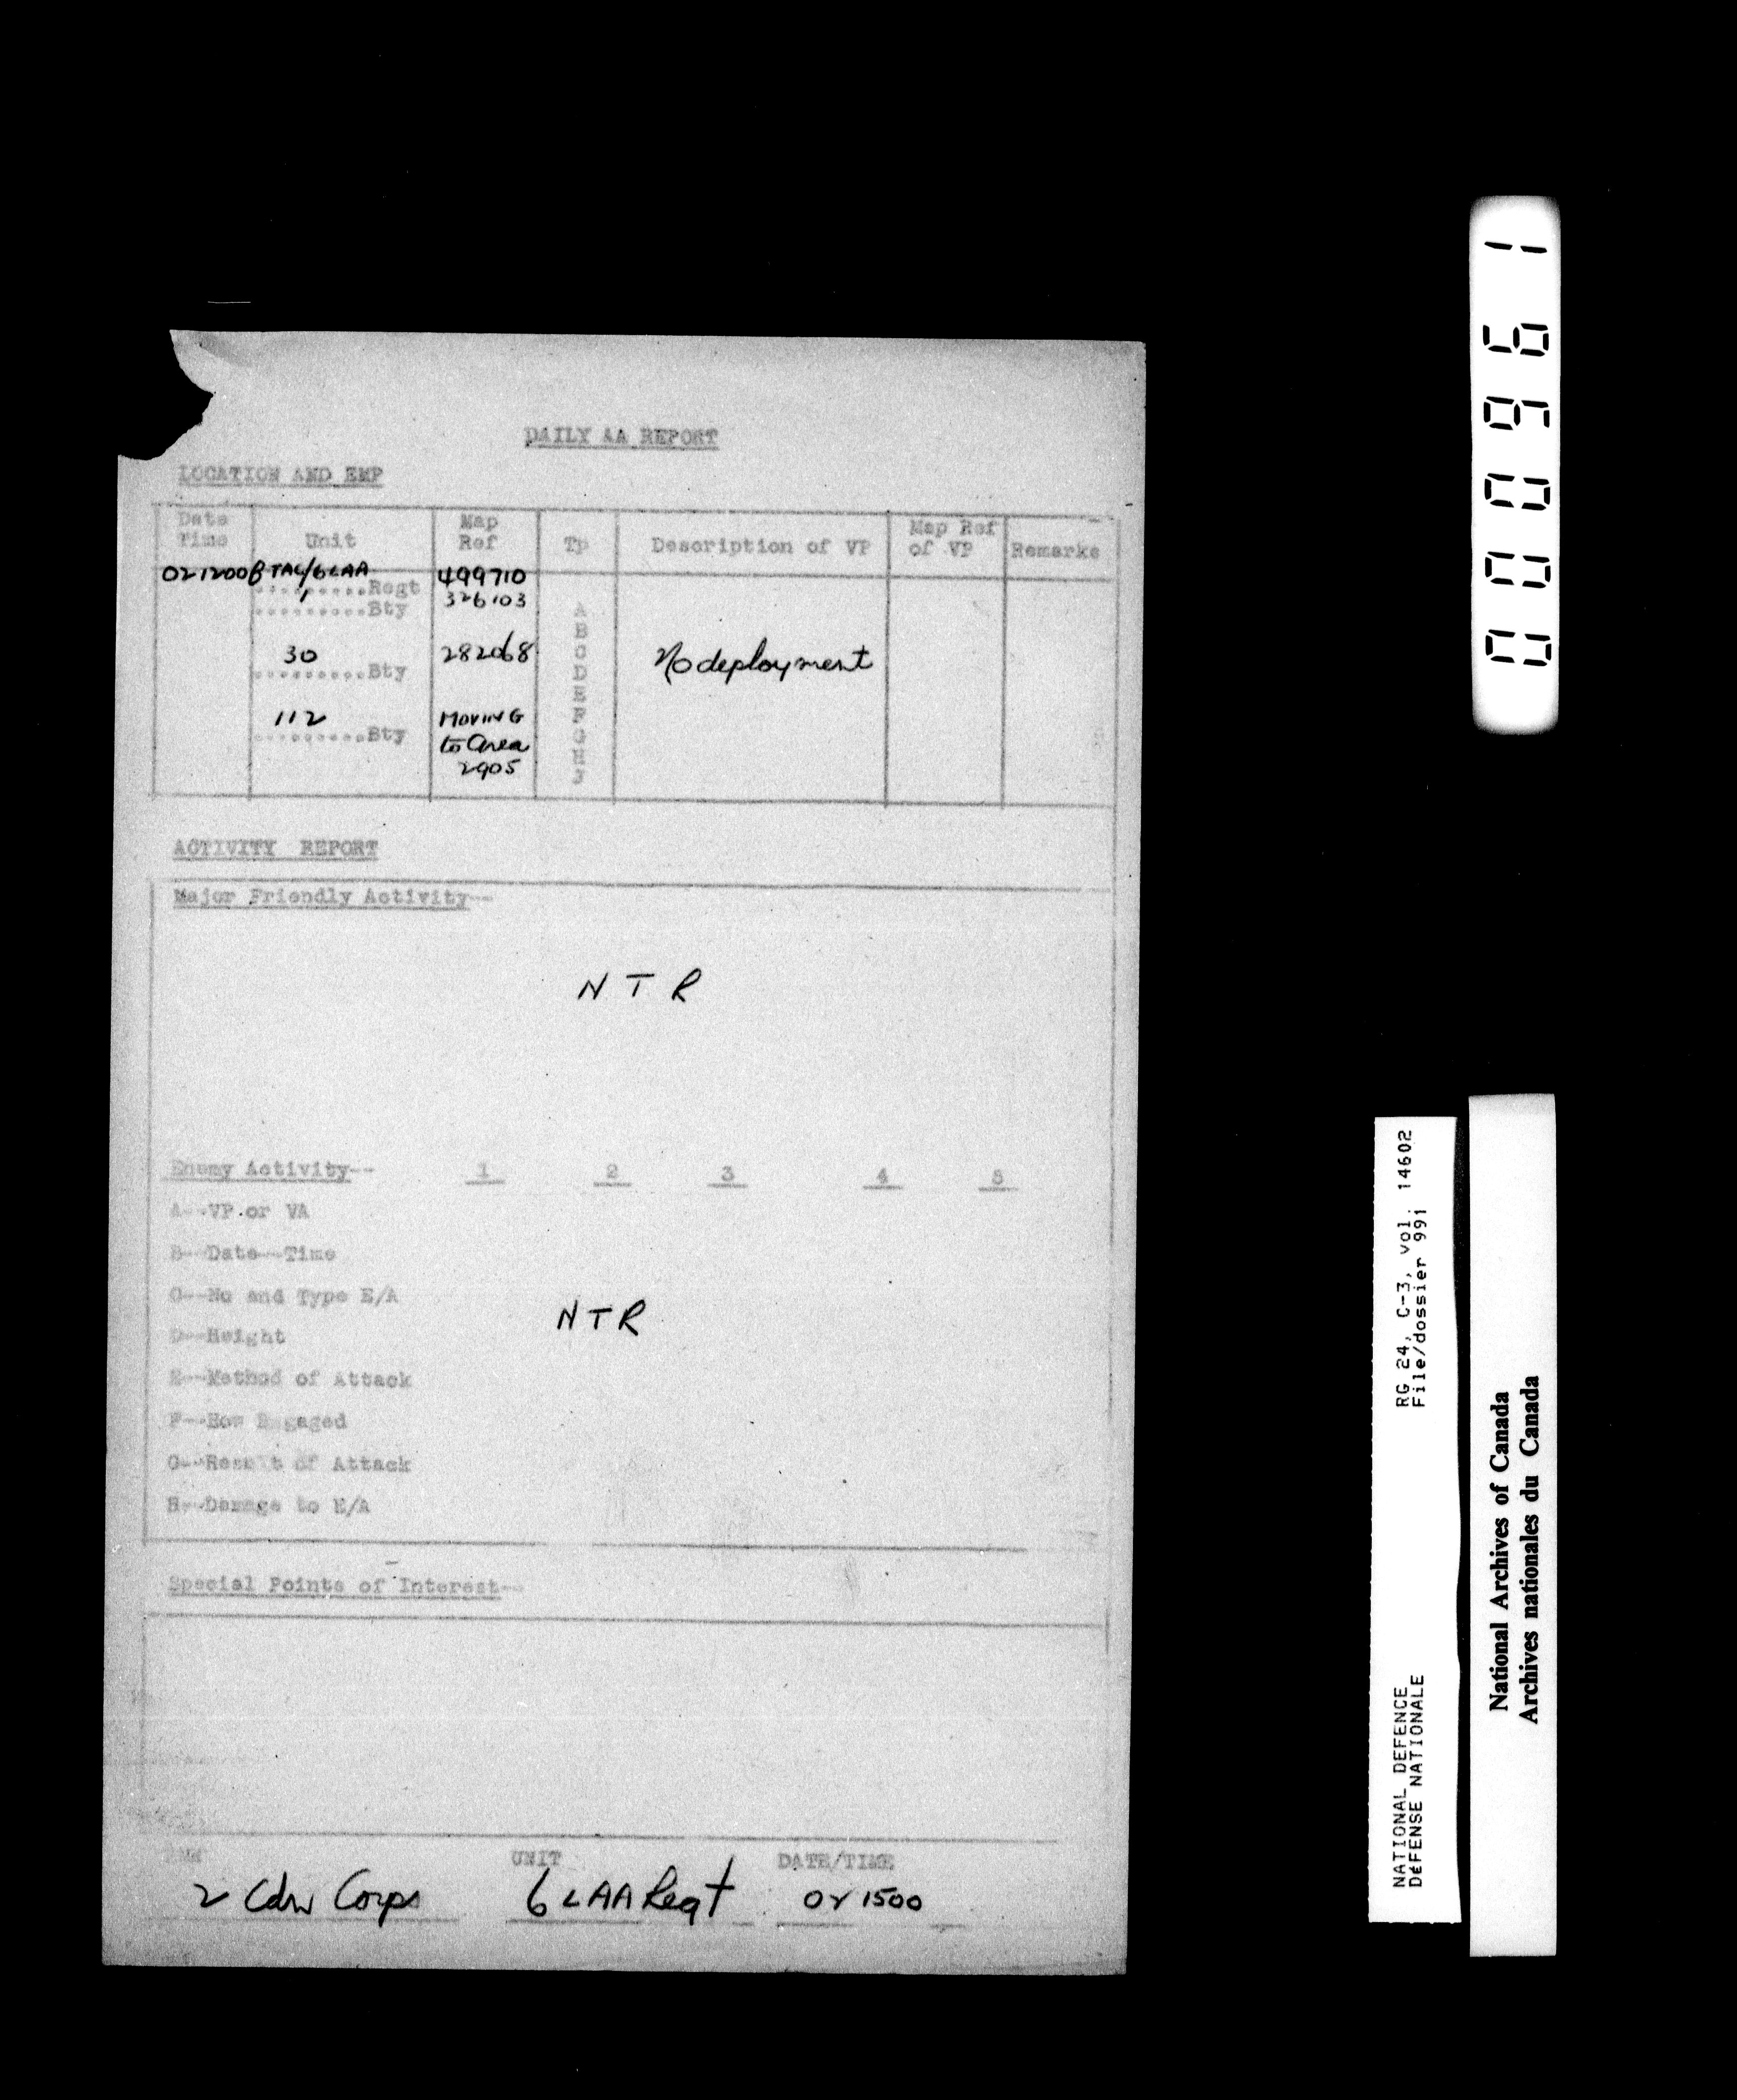 DAILY AA REPORT
LOCATION AND EMP
Date Time Unit Map Ref Tp Description of VP Map Ref of VP Remarks
021200B TAC/6LAA Regt 499710
1 Bty 326103
A
B
30 Bty 282068 C No deployment
D
E
112 Bty MOVING F
to area G
2905 H
J
ACTIVITY REPORT
Major Friendly Activity--
N T R
Enemy Activity-- 1 2 3 4 5
A--VP or VA
B--Date--Time
C--No and Type E/A
NTR
D--Height
E--Method of Attack
F--How Engaged
G--Result of Attack
H--Damage to E/A
Special Points of Interest--
UNIT DATE/TIME
2 Cdn Corps 6 LAA Regt 02 1500
000961
RG 24, C-3, vol. 14602
File/dossier 991
NATIONAL DEFENCE
DÉFENSE NATIONALE
National Archives of Canada
Archives nationales du Canada